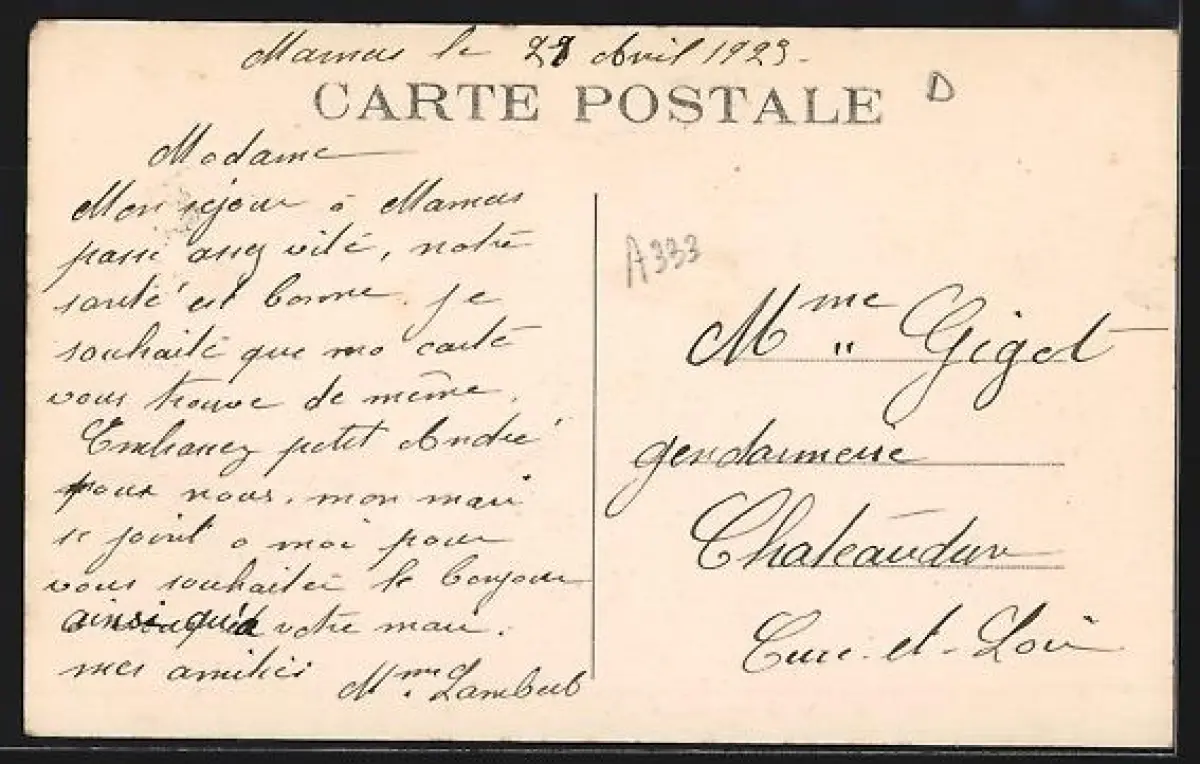 Mamers le 28 Avril 1923.
CARTE POSTALE
D
Madame
Mon séjour à Mamers
passe assez vite, notre
santé est bonne. Je
souhaite que ma carte
vous trouve de même.
Embrassez petit André
pour nous. mon mari
se joint a moi pour
vous souhaiter le bonjour
ainsi qu'à votre mari.
mes amitiés
Mme Lambert
A333
Mme Gigot
gendarmerie
Chateaudun
Eure-et-Loir